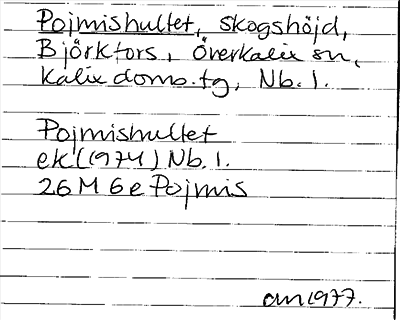 Pojmishultet, skogshöjd,
Björkfors, Överkalix sn,
Kalix doms.tg, Nb. l.
Pojmishultet
ek (1974) Nb. l.
26 M 6 e Pojmis
1977.